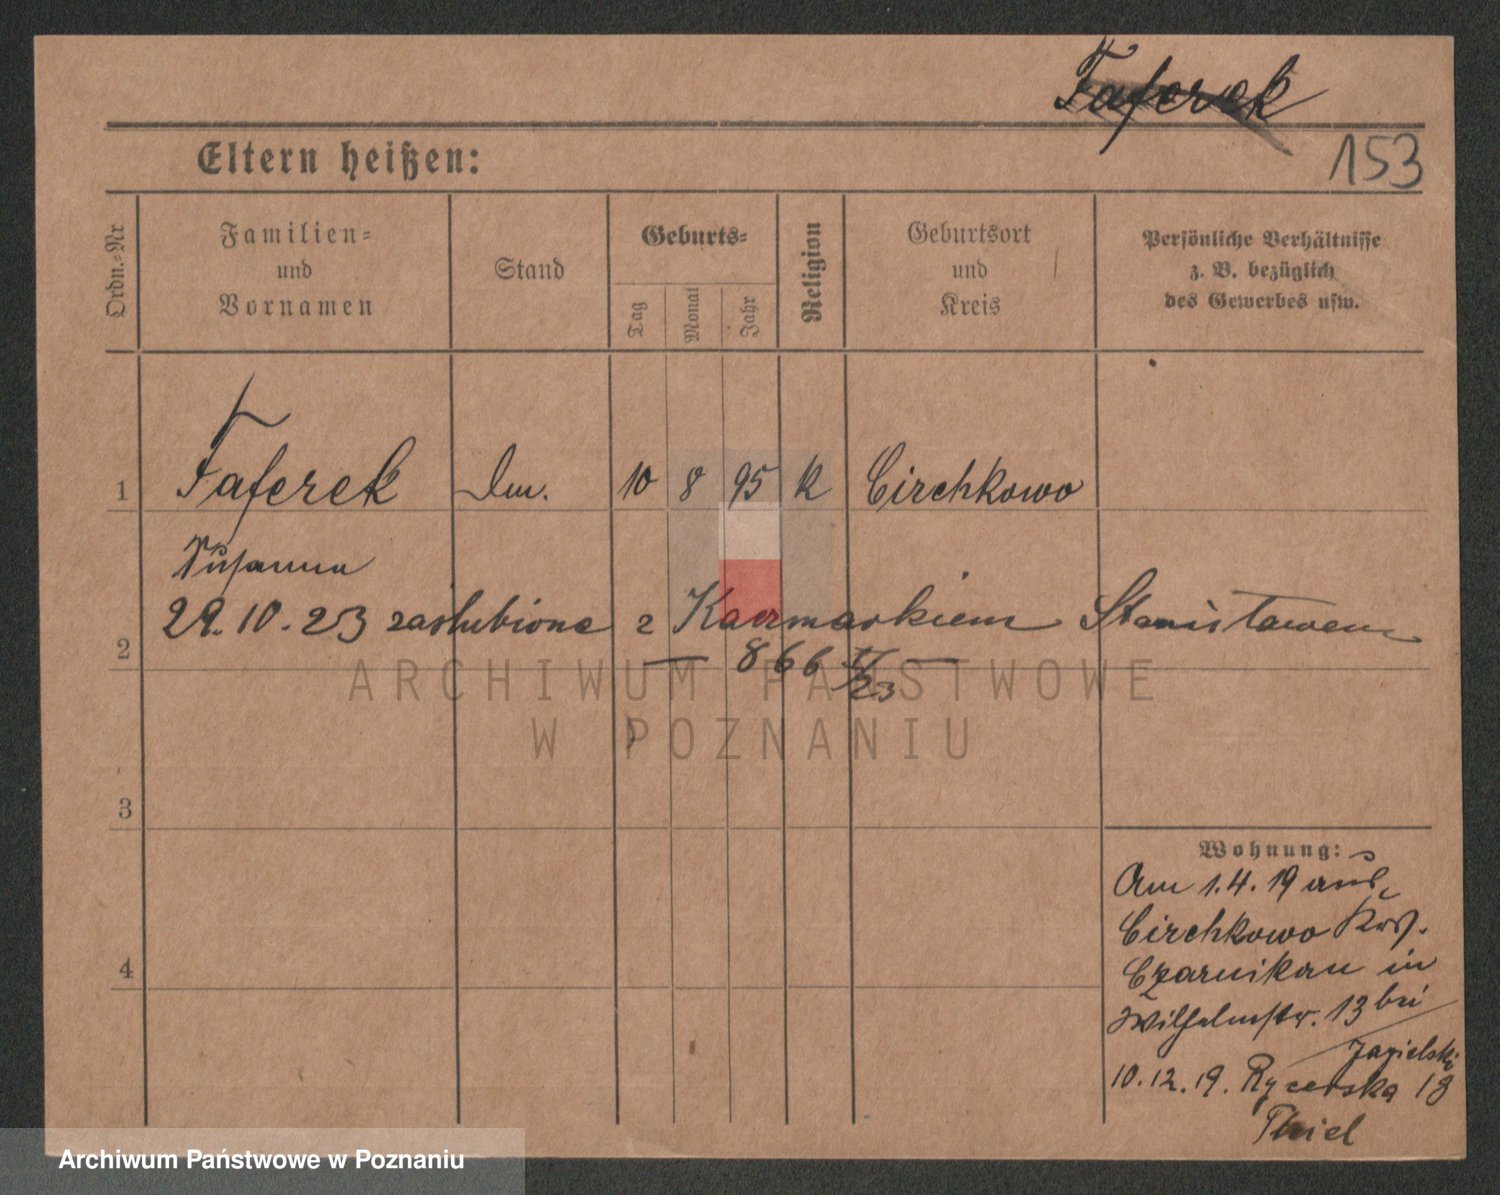 Faferek
Eltern heißen:
153
Ordn.-Nr
Familien-
und
Vornamen
Stand
Geburts-
Tag
Monat
Jahr
Religion
Geburtsort
und
Kreis
Persönliche Verhältnisse
z. B. bezüglich
des Gewerbes usw.
1 Faferek 10 8 95 K Circhkowo
Susanna
29.10.23 zaślubiona z Kaczmarkiem Stanisławem
2
— 866 —
ARCHIWUM PAŃSTWOWE
W POZNANIU
3
Wohnung:
Am 1.4.19 aus
Circhkowo Krs.
4
Czarnikau in
Wilhelmstr. 13 bei
Jagielski
10.12.19. Rycerska 18
Thiel
Archiwum Państwowe w Poznaniu